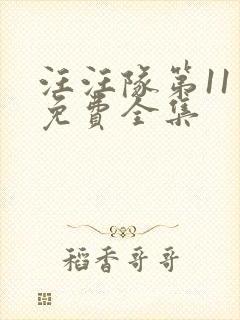 汪汪隊第11
免費全集
稻香哥哥